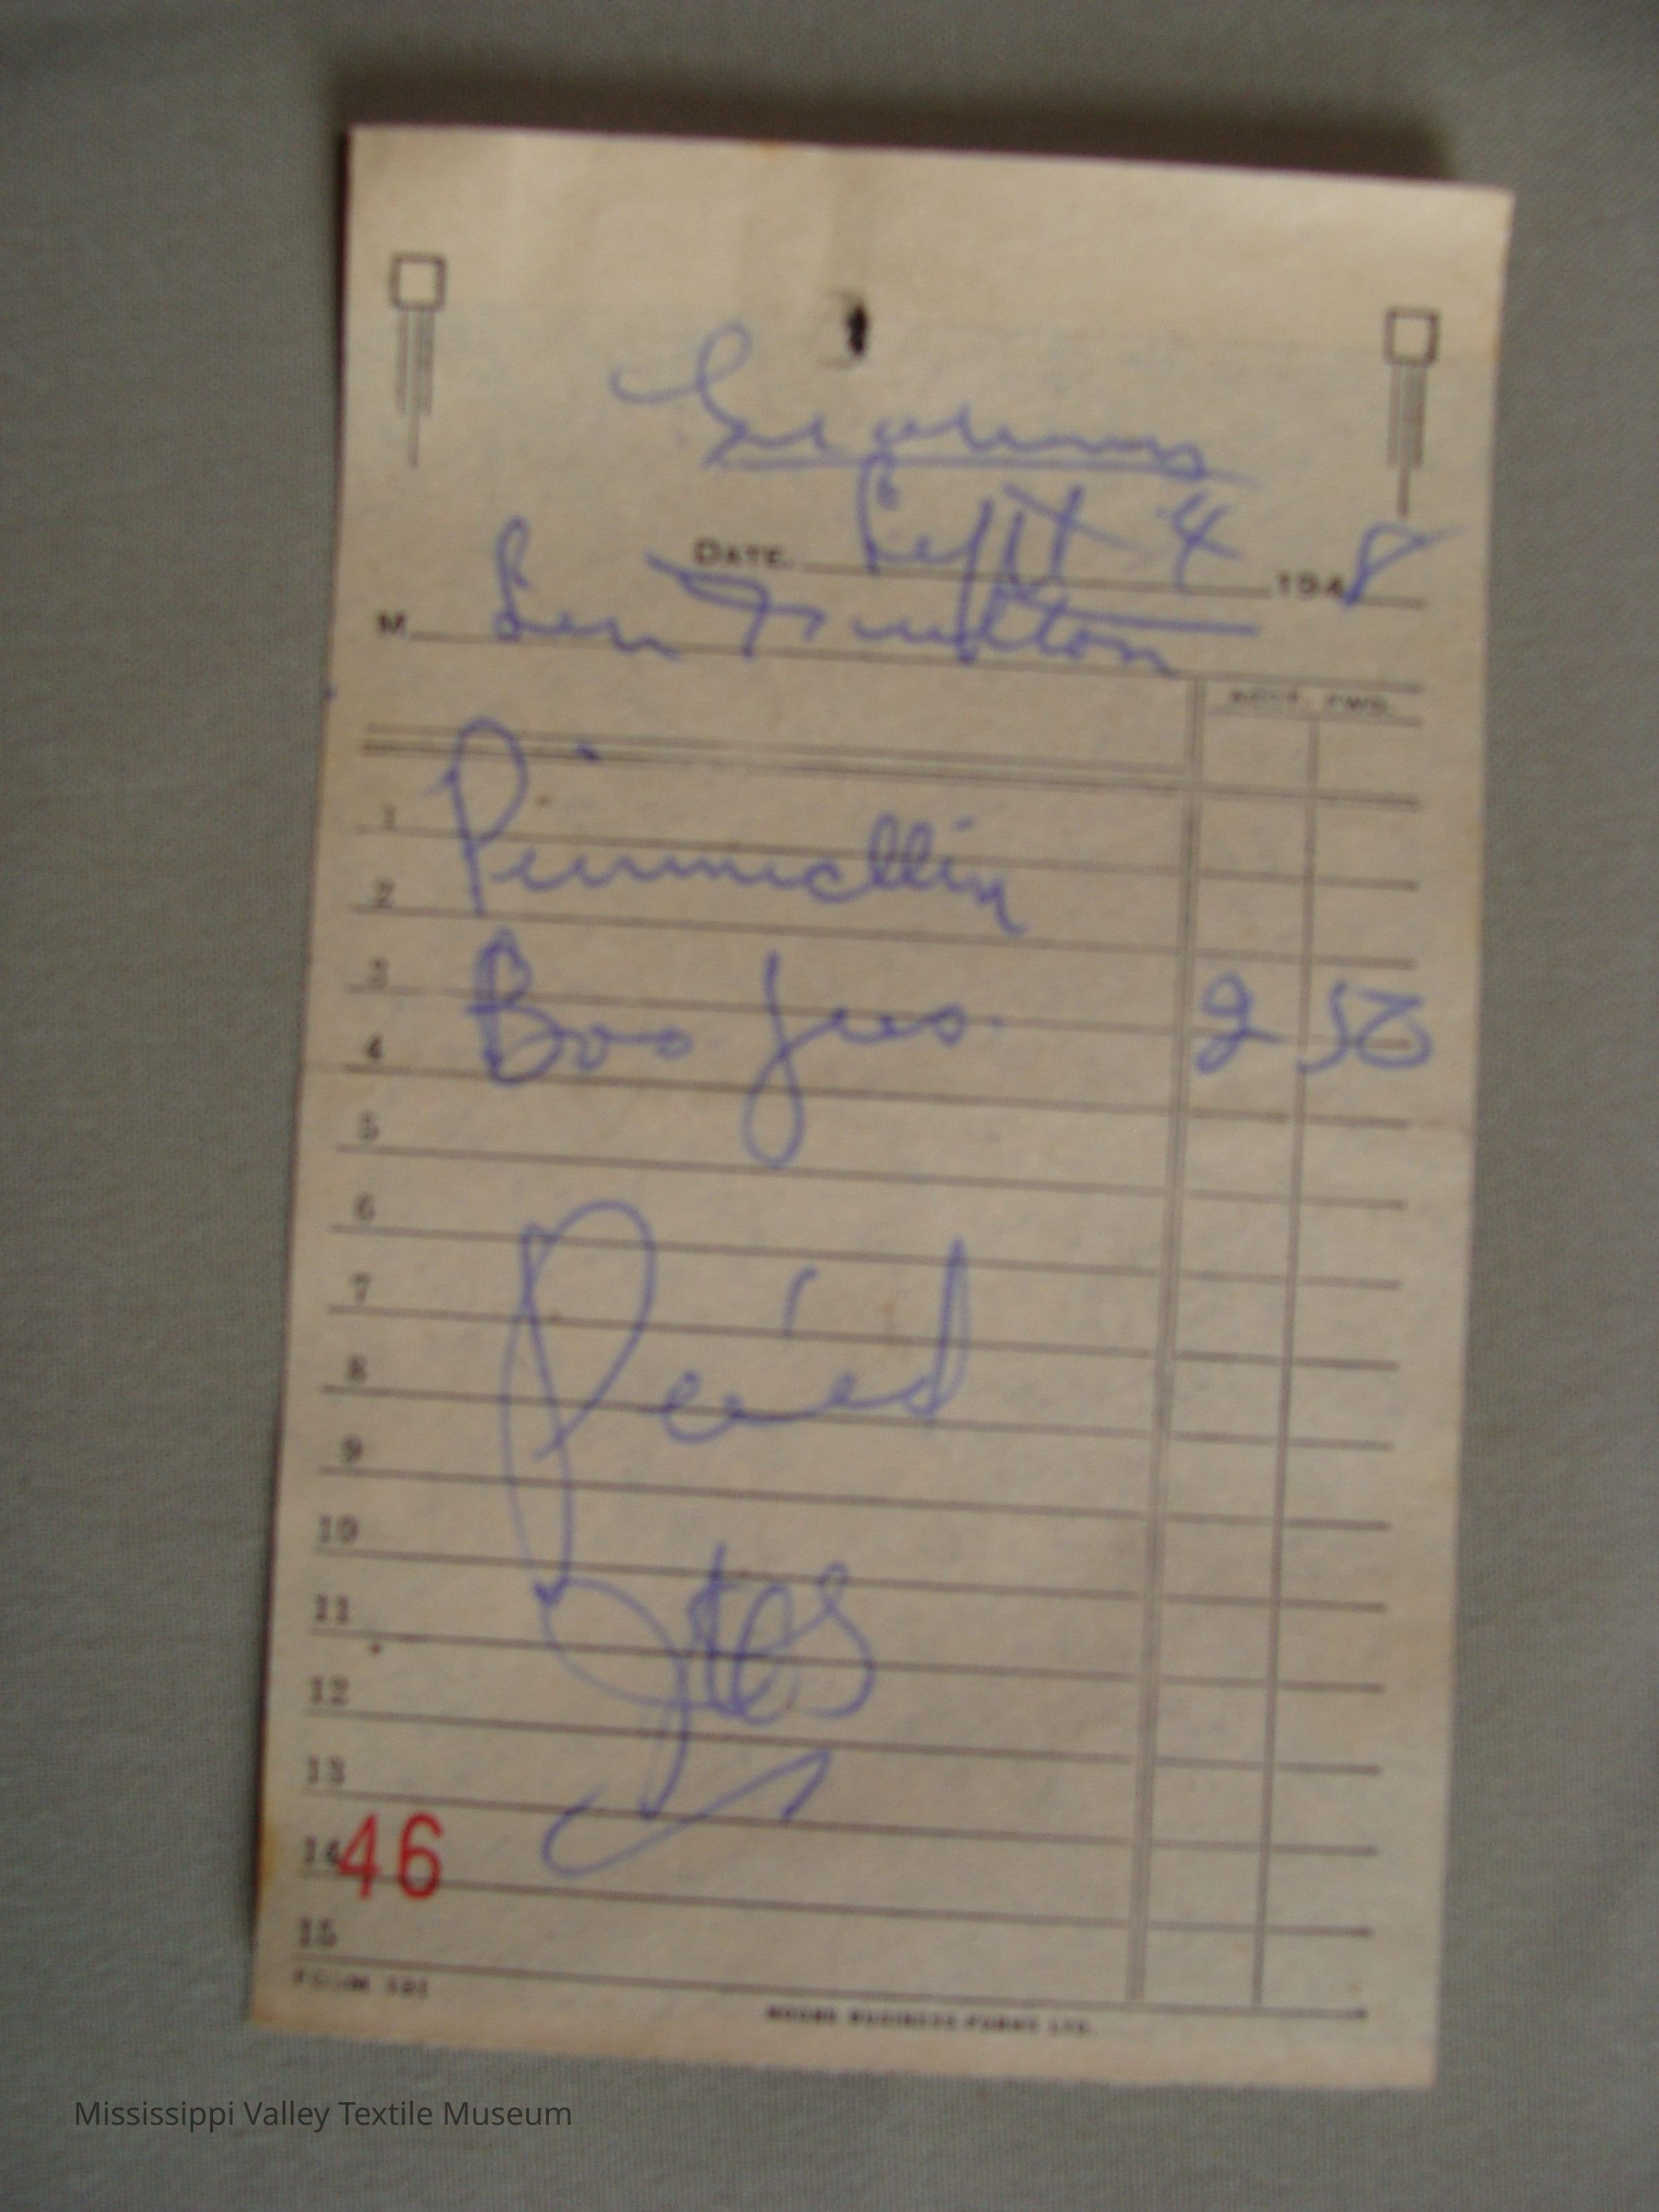 Grahams
DATE. Sept 4 1948
M. Len
ACCT. FWD.
1
2 Pinnicllin
3
4 Boo Jus. 2 50
5
6
7
8 Peid
9
10
11
12
13
14 46
15
FORM 121
MOORE BUSINESS FORMS LTD.
Mississippi Valley Textile Museum